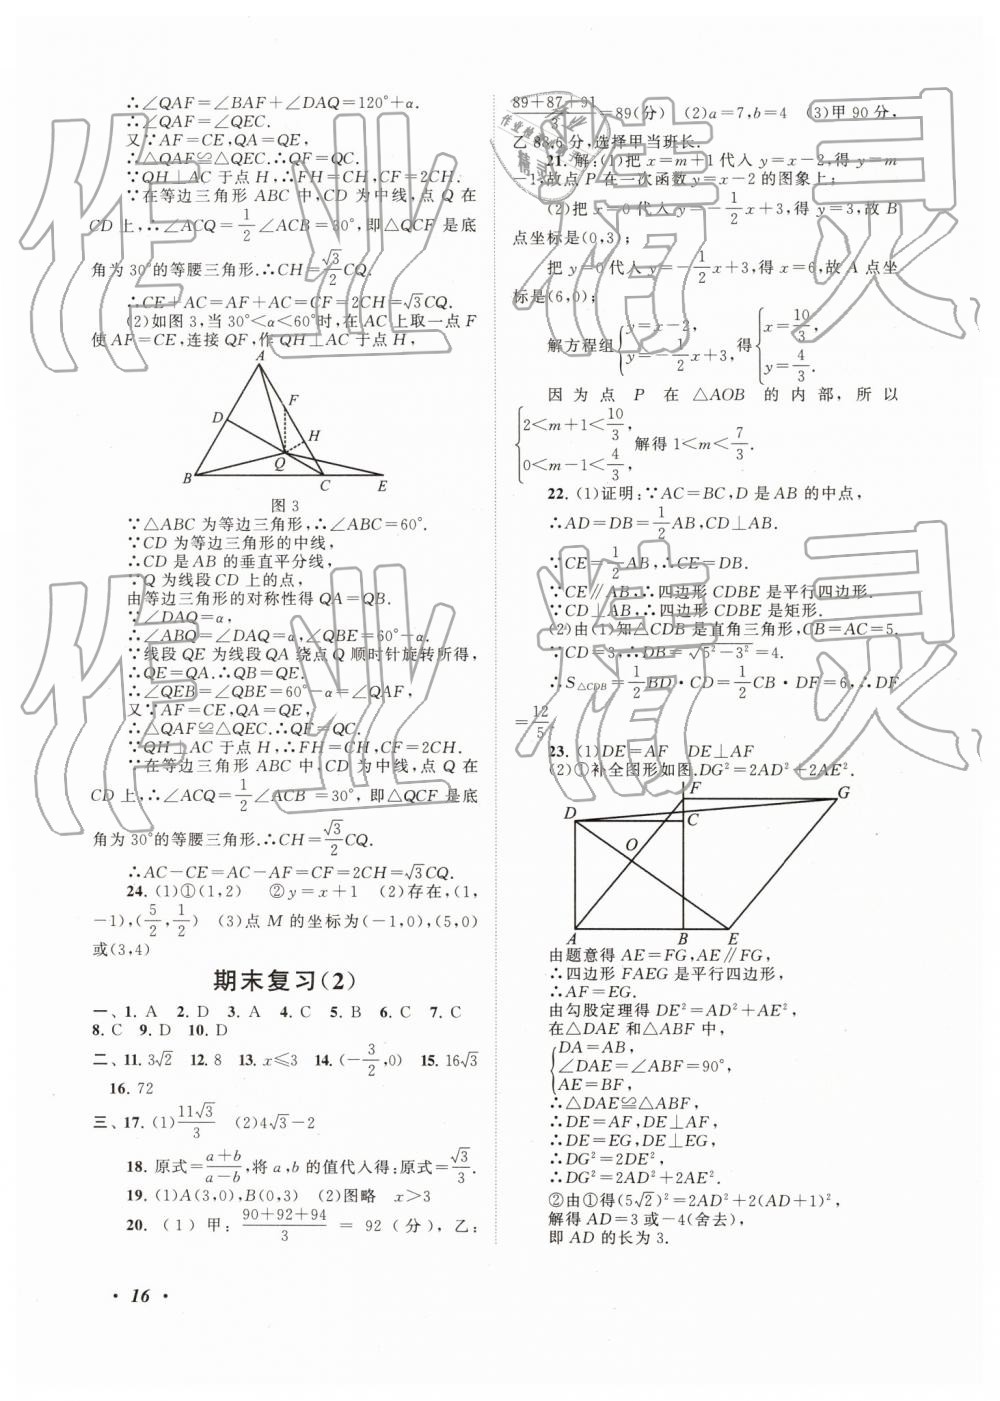 ∴∠QAF=∠BAF+∠DAQ=120°+α.
∴∠QAF=∠QEC.
又∵AF=CE,QA=QE,
∴△QAF≌△QEC.∴QF=QC.
∵QH⊥AC于点H,∴FH=CH,CF=2CH.
∵在等边三角形ABC中,CD为中线,点Q在
CD上,∴∠ACQ=1/2∠ACB=30°,即△QCF是底
角为30°的等腰三角形.∴CH=√3/2CQ.
∴CE+AC=AF+AC=CF=2CH=√3CQ.
(2)如图3,当30°<α<60°时,在AC上取一点F
使AF=CE,连接QF,作QH⊥AC于点H,
A
F
D
H
Q
B C E
图3
∵△ABC为等边三角形,∴∠ABC=60°.
∵CD为等边三角形的中线,
∴CD是AB的垂直平分线,
∵Q为线段CD上的点,
由等边三角形的对称性得QA=QB.
∵∠DAQ=α,
∴∠ABQ=∠DAQ=α,∠QBE=60°-α.
∵线段QE为线段QA绕点Q顺时针旋转所得,
∴QE=QA.∴QB=QE.
∴∠QEB=∠QBE=60°-α=∠QAF.
又∵AF=CE,QA=QE,
∴△QAF≌△QEC.∴QF=QC.
∵QH⊥AC于点H,∴FH=CH,CF=2CH.
∵在等边三角形ABC中,CD为中线,点Q在
CD上,∴∠ACQ=1/2∠ACB=30°,即△QCF是底
角为30°的等腰三角形.∴CH=√3/2CQ.
∴AC-CE=AC-AF=CF=2CH=√3CQ.
24. (1)①(1,2) ②y=x+1 (2)存在,(1,
-1),(5/2,1/2) (3)点M的坐标为(-1,0),(5,0)
或(3,4)
期末复习(2)
一、1. A 2. D 3. A 4. C 5. B 6. C 7. C
8. C 9. D 10. D
二、11. 3√2 12. 8 13. x≤3 14. (-3/2,0) 15. 16√3
16. 72
三、17. (1)11√3/3 (2)4√3-2
18. 原式=a+b/a-b,将a,b的值代入得:原式=√3/3.
19. (1)A(3,0),B(0,3) (2)图略 x>3
20. (1)甲:90+92+94/3=92(分),乙:
· 16 ·
89+87+91/3=89(分) (2)a=7,b=4 (3)甲90分,
乙88.6分,选择甲当班长.
21. 解:(1)把x=m+1代入y=x-2,得y=m
-1,故点P在一次函数y=x-2的图象上;
(2)把x=0代入y=-1/2x+3,得y=3,故B
点坐标是(0,3);
把y=0代入y=-1/2x+3,得x=6,故A点坐
标是(6,0);
解方程组{y=x-2, y=-1/2x+3,得{x=10/3, y=4/3.
因为点P在△AOB的内部,所以
{2<m+1<10/3, 0<m-1<4/3,解得1<m<7/3.
22. (1)证明:∵AC=BC,D是AB的中点,
∴AD=DB=1/2AB,CD⊥AB.
∵CE=1/2AB,∴CE=DB.
∵CE∥AB,∴四边形CDBE是平行四边形.
∵CD⊥AB,∴四边形CDBE是矩形.
(2)由(1)知△CDB是直角三角形,CB=AC=5.
∵CD=3,∴DB=√5²-3²=4.
∴S△CDB=1/2BD·CD=1/2CB·DF=6,∴DF
=12/5.
23. (1)DE=AF DE⊥AF
(2)①补全图形如图.DG²=2AD²+2AE².
F G
D C
O
A B E
由题意得AE=FG,AE∥FG,
∴四边形FAEG是平行四边形,
∴AF=EG.
由勾股定理得DE²=AD²+AE²,
在△DAE和△ABF中,
{DA=AB,
∠DAE=∠ABF=90°,
AE=BF,
∴△DAE≌△ABF,
∴DE=AF,DE⊥AF,
∴DE=EG,DE⊥EG,
∴DG²=2DE²,
∴DG²=2AD²+2AE².
②由①得(5√2)²=2AD²+2(AD+1)²,
解得AD=3或-4(舍去),
即AD的长为3.
作业精灵
作业精灵